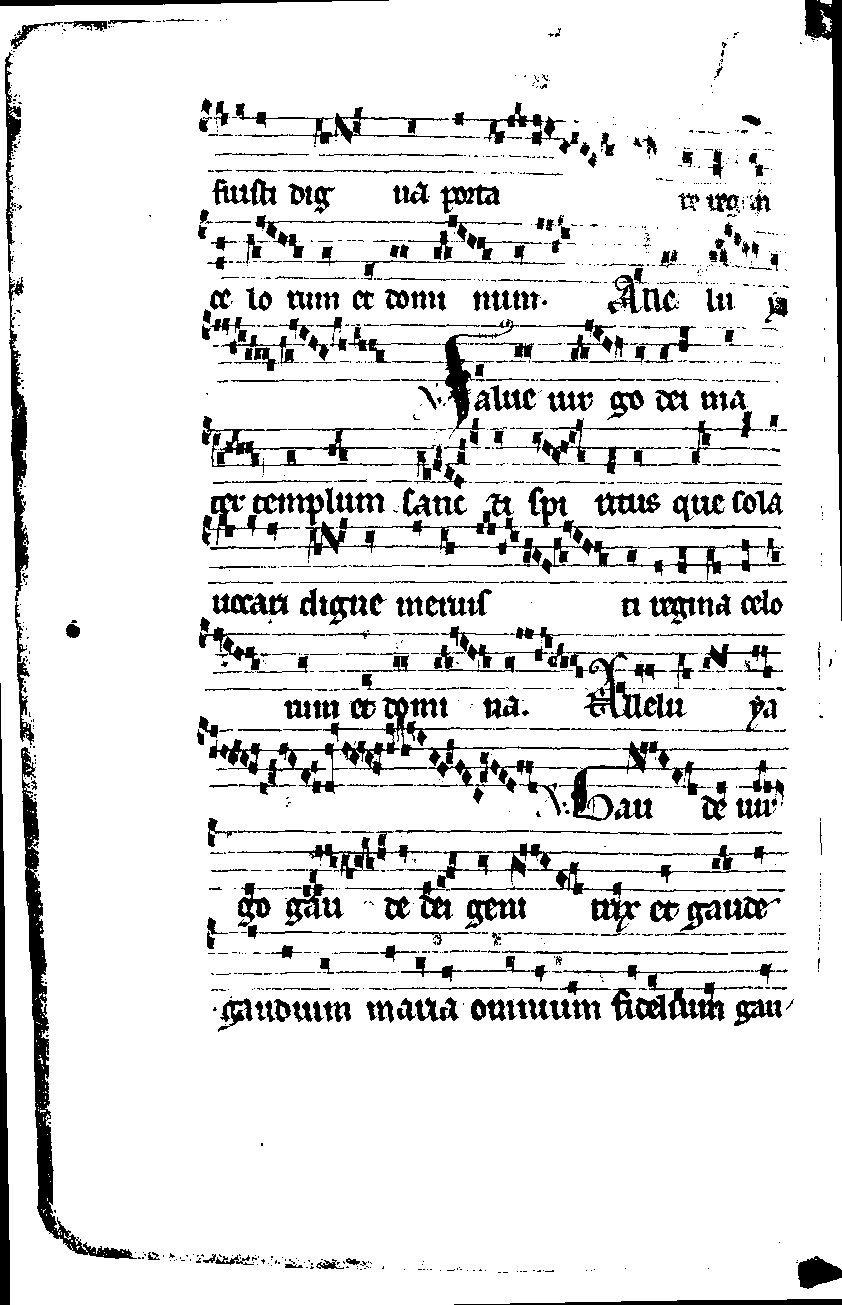 fuisti dig na porta re regem
ce lo rum et domi num. Alle lu ya
V Salue uir go dei ma
ter templum sanc ti spi ritus que sola
uocari digne meruis ti regina celo
rum et domi na. Allelu ya
V. Gau de uir
go gau de dei geni trix et gaude
gaudium maria omnium fidelium gau